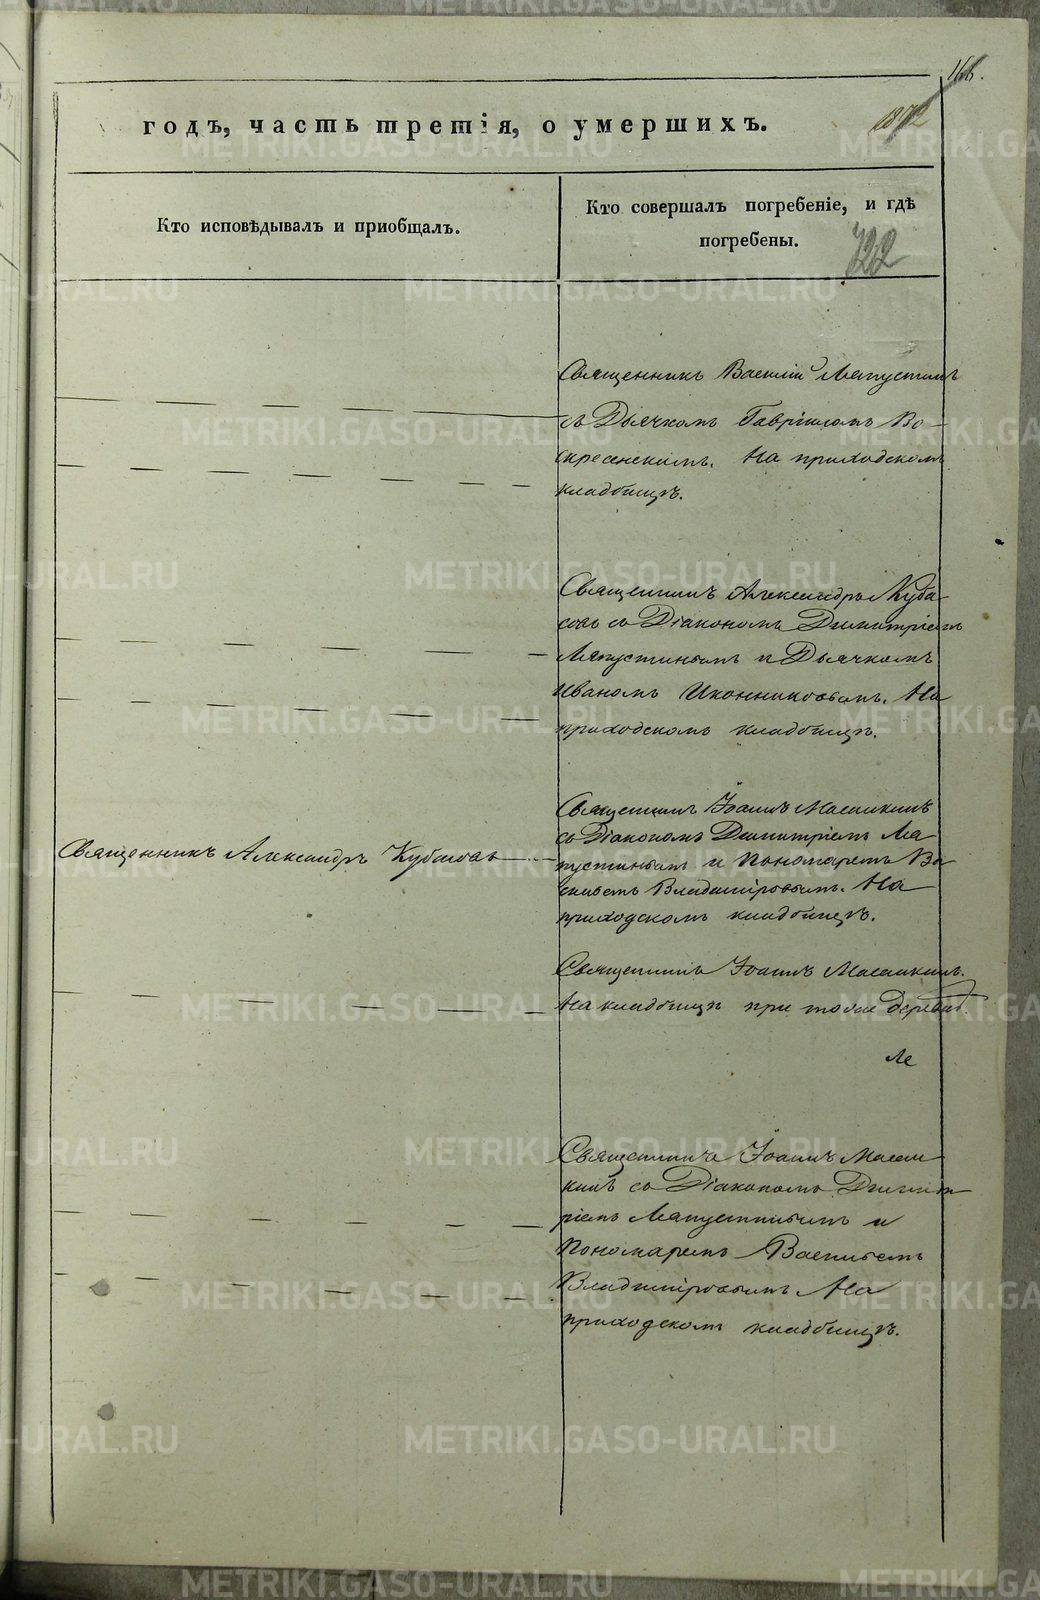 166.
годъ, часть третія, о умершихъ.
1872
Кто исповѣдывалъ и приобщалъ.
Кто совершалъ погребеніе, и гдѣ
погребены.
722
Священникъ Василій Ляпустинъ
съ Дьячкомъ Гавріиломъ Во-
скресенскимъ. На приходскомъ
кладбищѣ.
Священникъ Александръ Куба-
совъ съ Діакономъ Димитріемъ
Ляпустинымъ и Дьячкомъ
Иваномъ Иконниковымъ. На
приходскомъ кладбищѣ.
Священникъ Александръ Кубасовъ
Священникъ Іоаннъ
съ Діакономъ Димитріемъ Ля
пустинымъ и Пономаремъ Ва
сильемъ Владиміровымъ. На
приходскомъ кладбищѣ.
Священникъ Іоаннъ
На кладбищѣ при той же деревнѣ.
Священникъ Іоаннъ
съ Діакономъ Димит
ріемъ Ляпустинымъ и
Пономаремъ Васильемъ
Владиміровымъ На
приходскомъ кладбищѣ.
METRIKI.GASO-URAL.RU